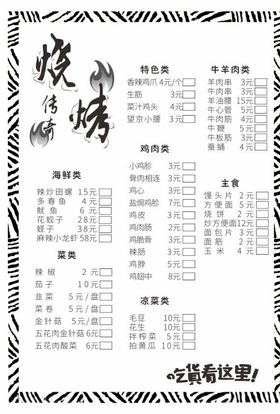 烧烤
传奇
特色类
香辣鸡爪 4元/个
生筋 3元
菜汁鸡头 4元
望京小腰 3元
牛羊肉类
羊肉串 3元
牛肉串 3元
羊油腰 15元
牛心管 5元
牛肉筋 4元
牛鞭 5元
牛板筋 3元
蚕蛹 4元
鸡肉类
小鸡胗 3元
骨肉相连 3元
鸡心 3元
盐焗鸡胗 7元
鸡皮 3元
鸡肉肠 2元
鸡脆骨 3元
辣肠 3元
鸡脖 5元
鸡翅中 8元
海鲜类
辣炒田螺 15元
多春鱼 4元
鱿鱼 6元
花蚬子 28元
蛏子 38元
麻辣小龙虾 58元
主食
馒头片 2元
方便面 5元
烧饼 2元
炒方便面 12元
面包片 3元
面筋 2元
玉米 4元
菜类
辣椒 2元
茄子 10元
韭菜 5元/盘
菜卷 5元/盘
金针菇 5元/盘
五花肉金针菇 6元
五花肉酸菜 6元
凉菜类
毛豆 10元
花生 10元
拌榨菜 5元
拍黄瓜 10元
吃货看这里!